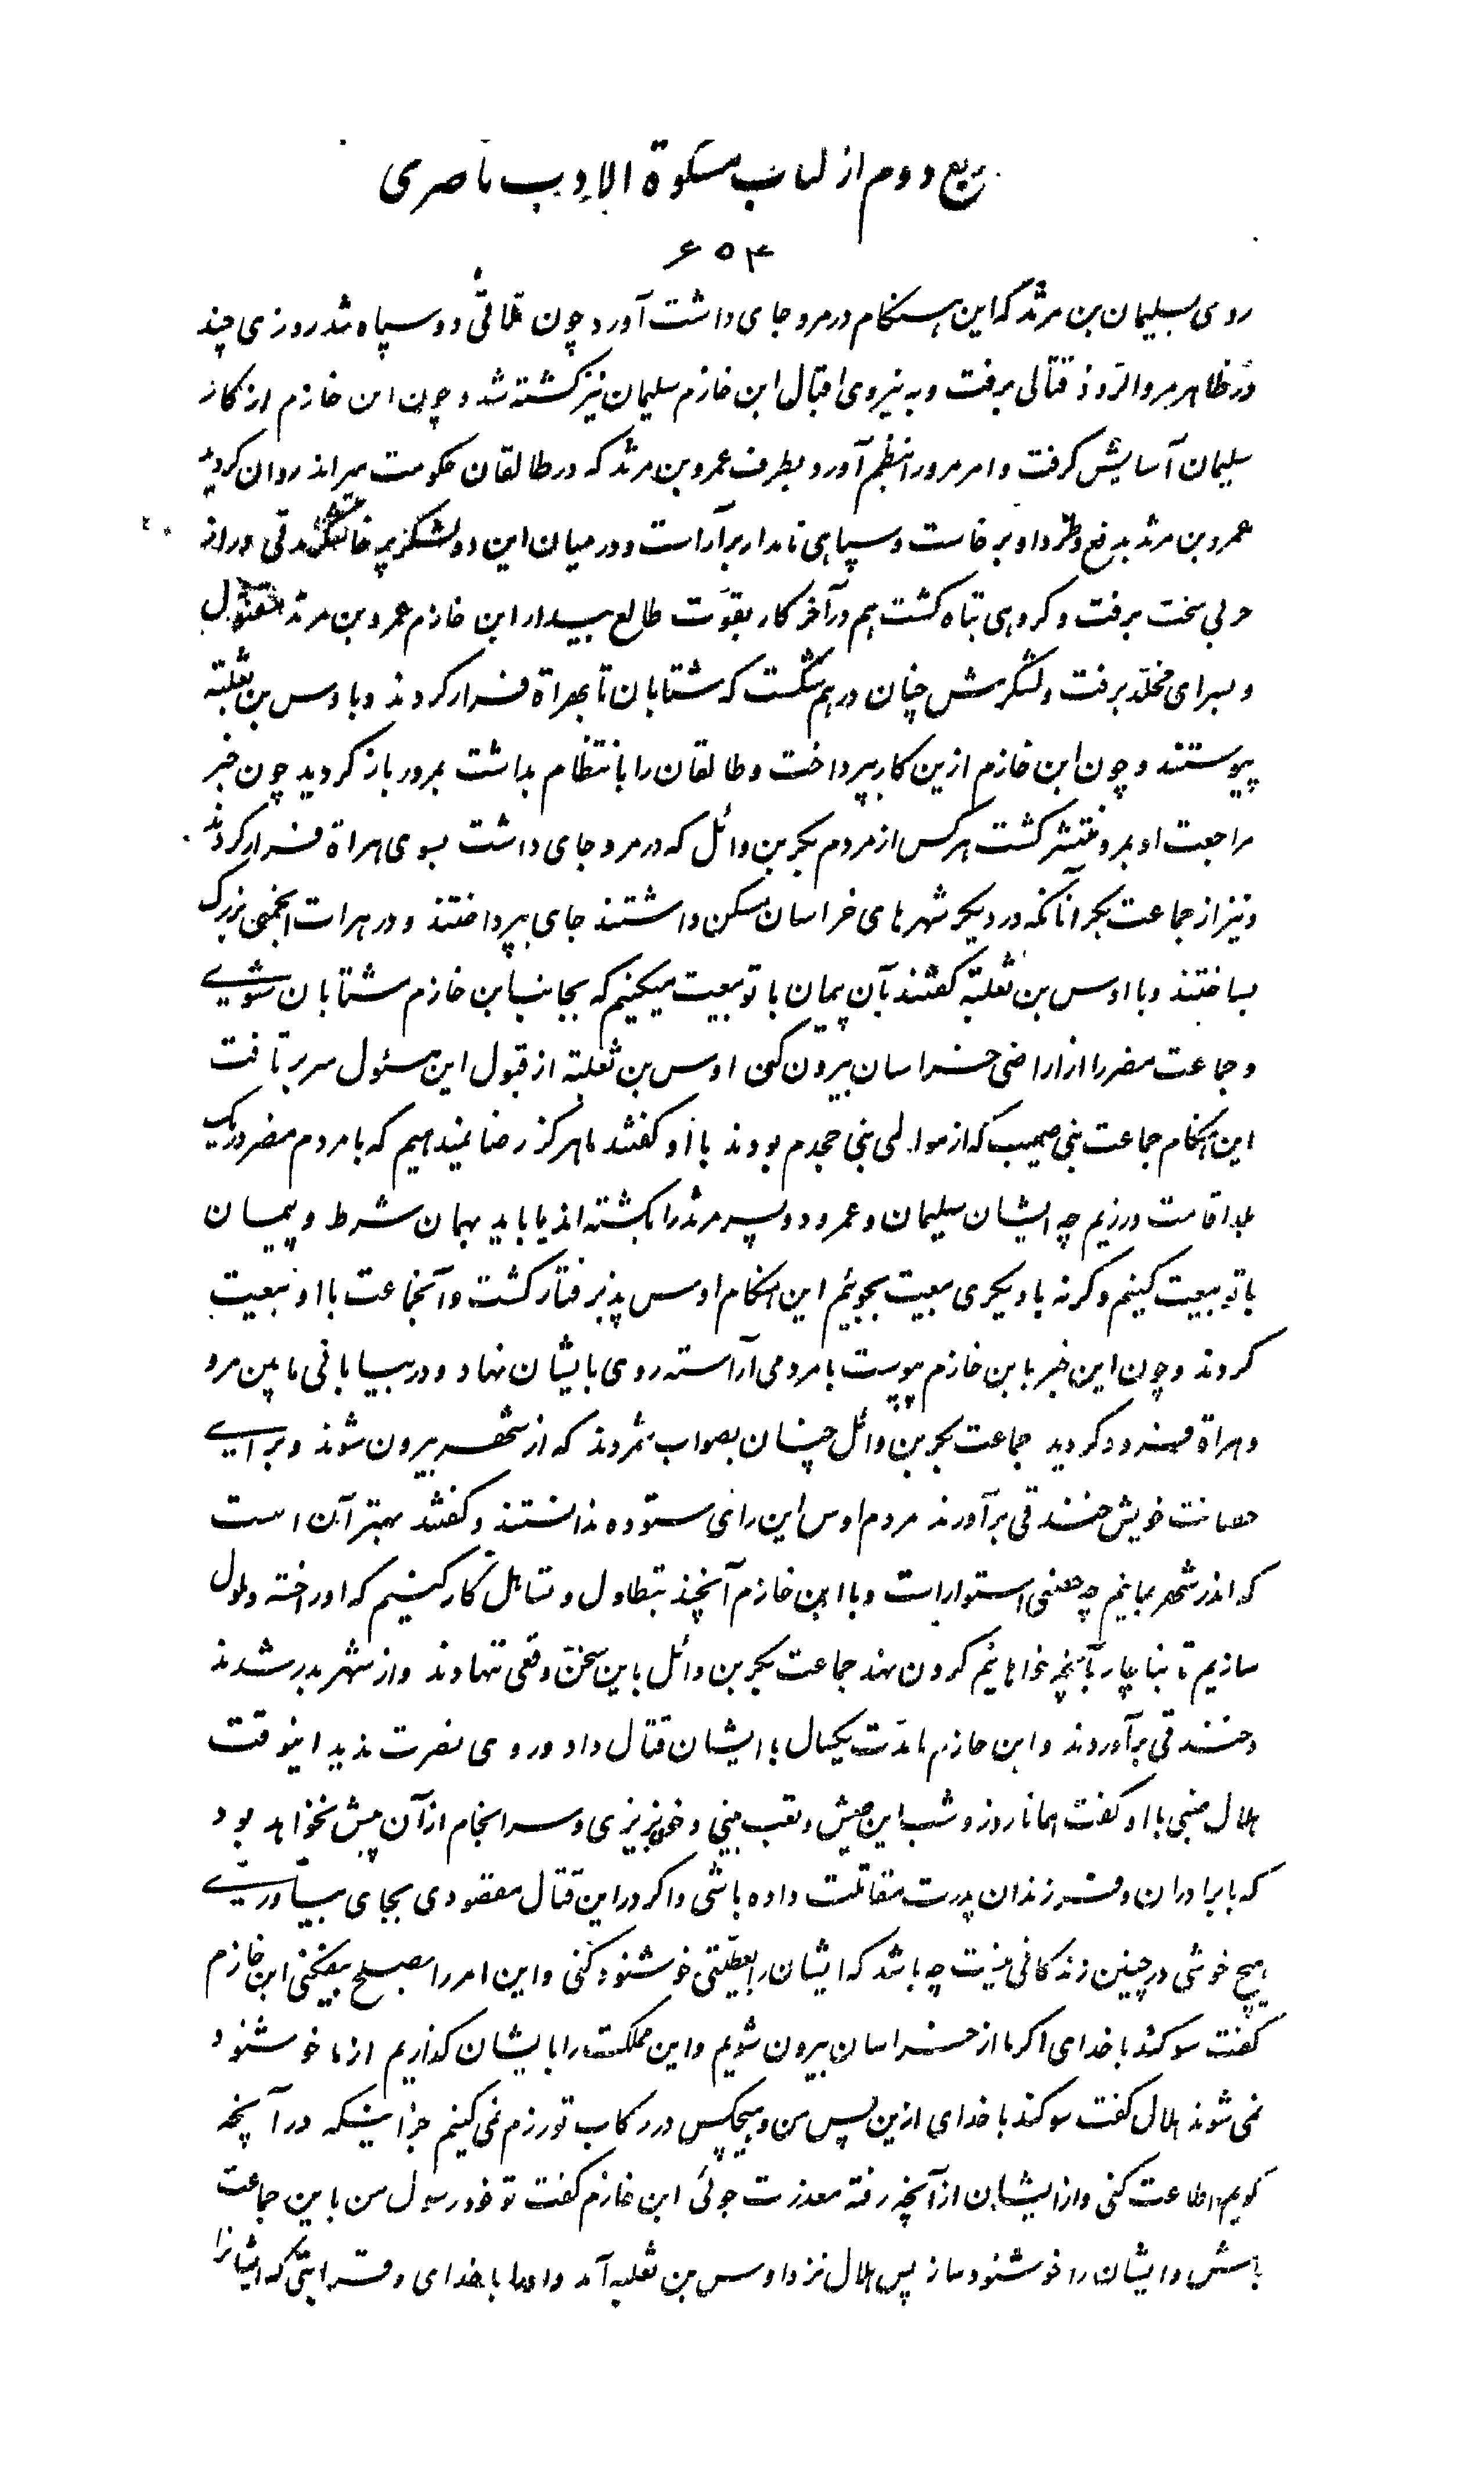 ربع دوم از کتاب مشکوة الادب ناصری
۶۵۴
روی بسلیمان بن مرثد که این هنگام در مرو جای داشت آورد چون تلاقی دو سپاه شد روزی چند
در ظاهر مرو الروذ قتالی برفت و به نیروی اقبال ابن خازم سلیمان نیز کشته شد و چون ابن خازم از کار
سلیمان آسایش گرفت و امر مرو را بنظم آورد بطرف عمرو بن مرثد که در طالقان حکومت میراند روان گردید
عمرو بن مرثد بدفع و طرد او برخاست و سپاهی نامدار برآراست و در میان این دو لشکر پرخاشگر مدتی دراز
حربی سخت برفت و گروهی تباه گشت هم در آخر کار بقوت طالع بیدار ابن خازم عمرو بن مرثد مقتول
و بسرای مخلد برفت و لشگرش چنان در هم شکست که شتابان تا بهراة فرار کردند و با اوس بن ثعلبة
پیوستند و چون ابن خازم ازین کار بپرداخت و طالقان را بانتظام بداشت بمرو باز گردید چون خبر
مراجعت او بمرو منتشر گشت هر کس از مردم بکر بن وائل که در مرو جای داشت بسوی هراة فرار کردند
و نیز از جماعت بکر آنانکه در دیگر شهرهای خراسان مسکن داشتند جای بپرداختند و در هرات انجمنی بزرگ
بساختند و با اوس بن ثعلبة گفتند بآن پیمان با تو بیعت میکنیم که بجانب ابن خازم شتابان شوی
و جماعت مضر را از اراضی خراسان بیرون کنی اوس بن ثعلبة از قبول این مسئول سر بر تافت
این هنگام جماعت بنی صهیب که از موالی بنی جحدم بودند با او گفتند ما هرگز رضا نمیدهیم که با مردم مضر در یک
بلد اقامت ورزیم چه ایشان سلیمان و عمرو دو پسر مرثد را بکشته اند یا باید بهمان شرط و پیمان
با تو بیعت کنیم و گرنه با دیگری بیعت بجوئیم این هنگام اوس پذیرفتار گشت و آنجماعت با او بیعت
کردند و چون این خبر بابن خازم پیوست با مردمی آراسته روی بایشان نهاد و در بیابانی مابین مرو
و هراة فرود گردید جماعت بکر بن وائل چنان بصواب شمردند که از شهر بیرون شوند و برای
حصانت خویش خندقی برآورند مردم اوس این رای ستوده ندانستند و گفتند بهتر آن است
که اندر شهر بمانیم چه حصنی استوار است و با ابن خازم آنچند بتطاول و تساهل کار کنیم که او را خسته و ملول
سازیم تا بناچار بآنچه خواهانیم گردن نهد جماعت بکر بن وائل باین سخن وقعی ننهادند و از شهر بدر شدند
و خندقی برآوردند و ابن خازم تا مدت یکسال با ایشان قتال داد و روی نصرت ندید اینوقت
هلال ضبی با او گفت همانا روز و شب این عیش و تعب بینی و خونریزی و سرانجام از آن بیش نخواهد بود
که با برادران و فرزندان پدرت مقاتلت داده باشی و اگر در این قتال مقصودی بجای بیاوری
هیچ خوشی در چنین زندگانی نیست چه باشد که ایشان را بعطیتی خوشنود کنی و این امر را بصلح بیفکنی ابن خازم
گفت سوگند با خدای اگر ما از خراسان بیرون شویم و این مملکت را بایشان گذاریم از ما خوشنود
نمی شوند هلال گفت سوگند با خدای ازین پس من و هیچکس در رکاب تو رزم نمی کنیم جز اینکه در آنچه
گویم اطاعت کنی و از ایشان از آنچه رفته معذرت جوئی ابن خازم گفت تو خود رسول من باین جماعت
باش و ایشان را خوشنود ساز پس هلال نزد اوس بن ثعلبه آمد و او را با خدای و قرابتی که ایشانرا